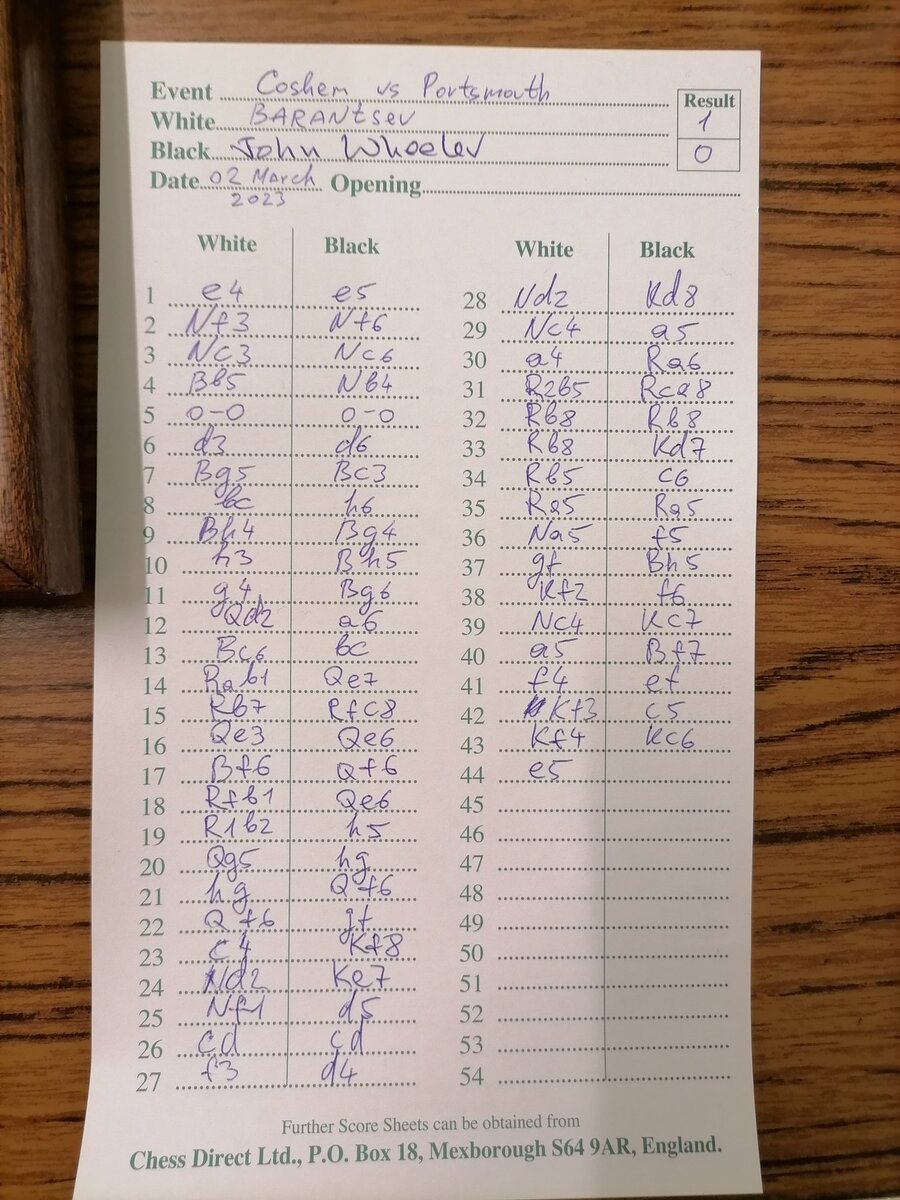 Event Coshem vs Portsmouth
Result
White BARANtsev 1
Black John Wheeler 0
Date 02 March 2023 Opening
White Black
1 e4 e5
2 Nf3 Nf6
3 Nc3 Nc6
4 Bb5 Nb4
5 0-0 0-0
6 d3 d6
7 Bg5 Bc3
8 bc h6
9 Bh4 Bg4
10 h3 Bh5
11 g4 Bg6
12 Qd2 a6
13 Bc6 bc
14 Rab1 Qe7
15 Rb7 Rfc8
16 Qe3 Qe6
17 Bf6 Qf6
18 Rfb1 Qe6
19 R1b2 h5
20 Qg5 hg
21 hg Qf6
22 Qf6 gf
23 c4 Kf8
24 Nd2 Ke7
25 Nf1 d5
26 cd cd
27 f3 d4
White Black
28 Nd2 Kd8
29 Nc4 a5
30 a4 Ra6
31 R2b5 Rca8
32 Rb8 Rb8
33 Rb8 Kd7
34 Rb5 c6
35 Ra5 Ra5
36 Na5 f5
37 gf Bh5
38 Kf2 f6
39 Nc4 Kc7
40 a5 Bf7
41 f4 ef
42 Kf3 c5
43 Kf4 Kc6
44 e5
45
46
47
48
49
50
51
52
53
54
Further Score Sheets can be obtained from
Chess Direct Ltd., P.O. Box 18, Mexborough S64 9AR, England.